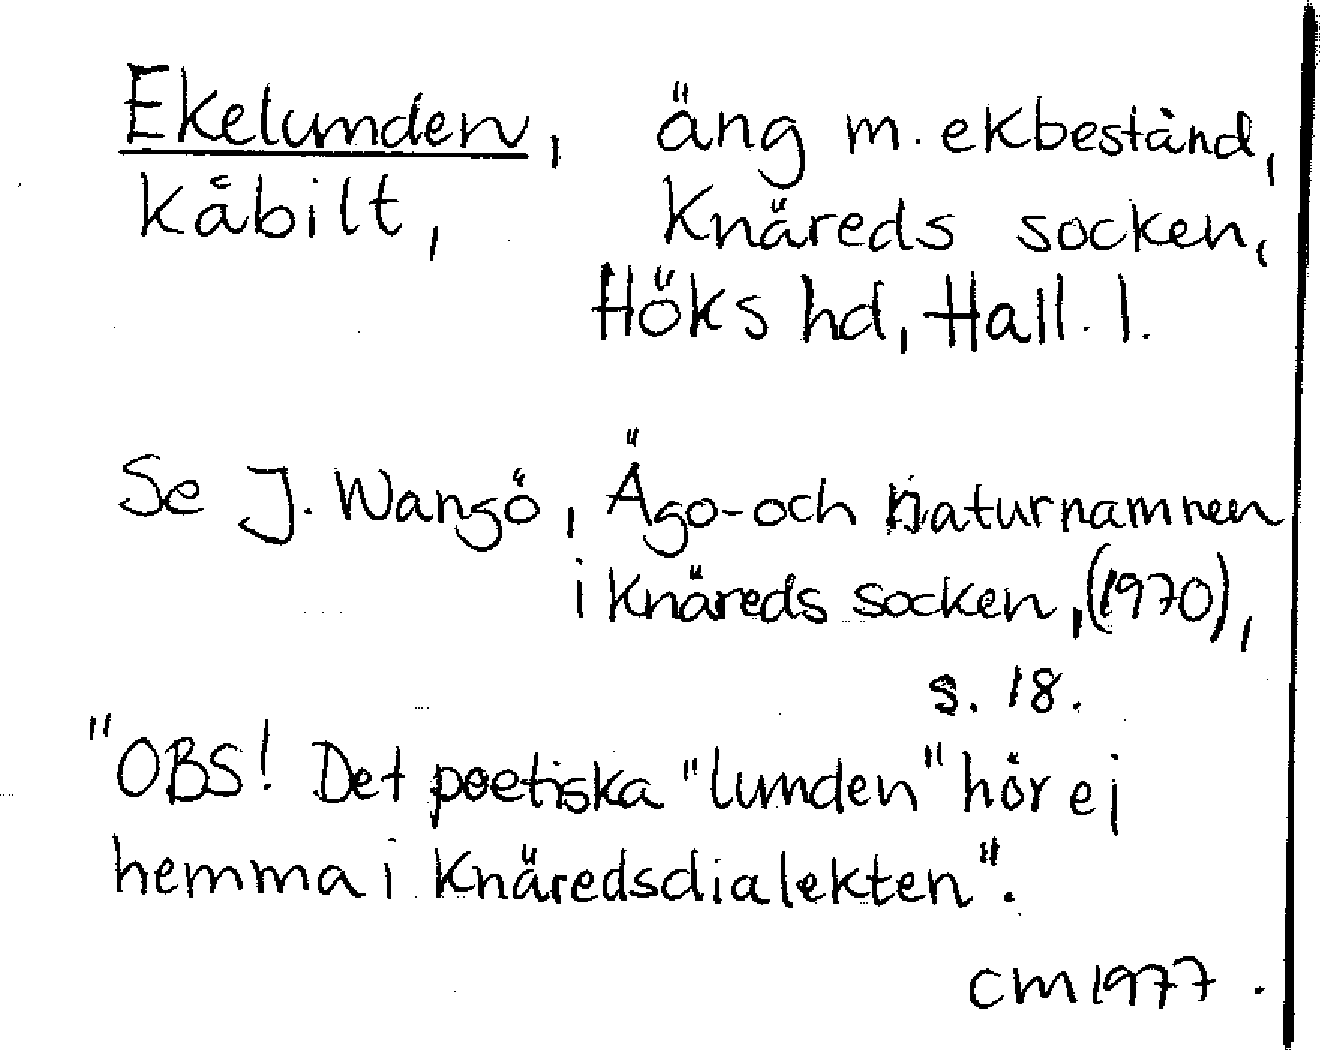 Ekelunden, äng m. ekbestånd,
Kåbilt, Knäreds socken,
Höks hd, Hall. l.
Se J. Wangö, Ägo- och naturnamnen
i Knäreds socken, (1970),
s. 18.
"OBS! Det poetiska "lunden" hör ej
hemma i Knäredsdialekten".
CM 1977.